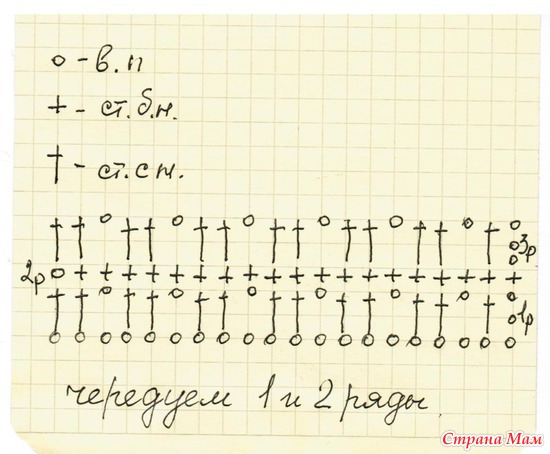 о - в.п
+ - ст.б.н.
† - ст.с н.
3р
2р
1р
чередуем 1 и 2 ряды.
Страна Мам